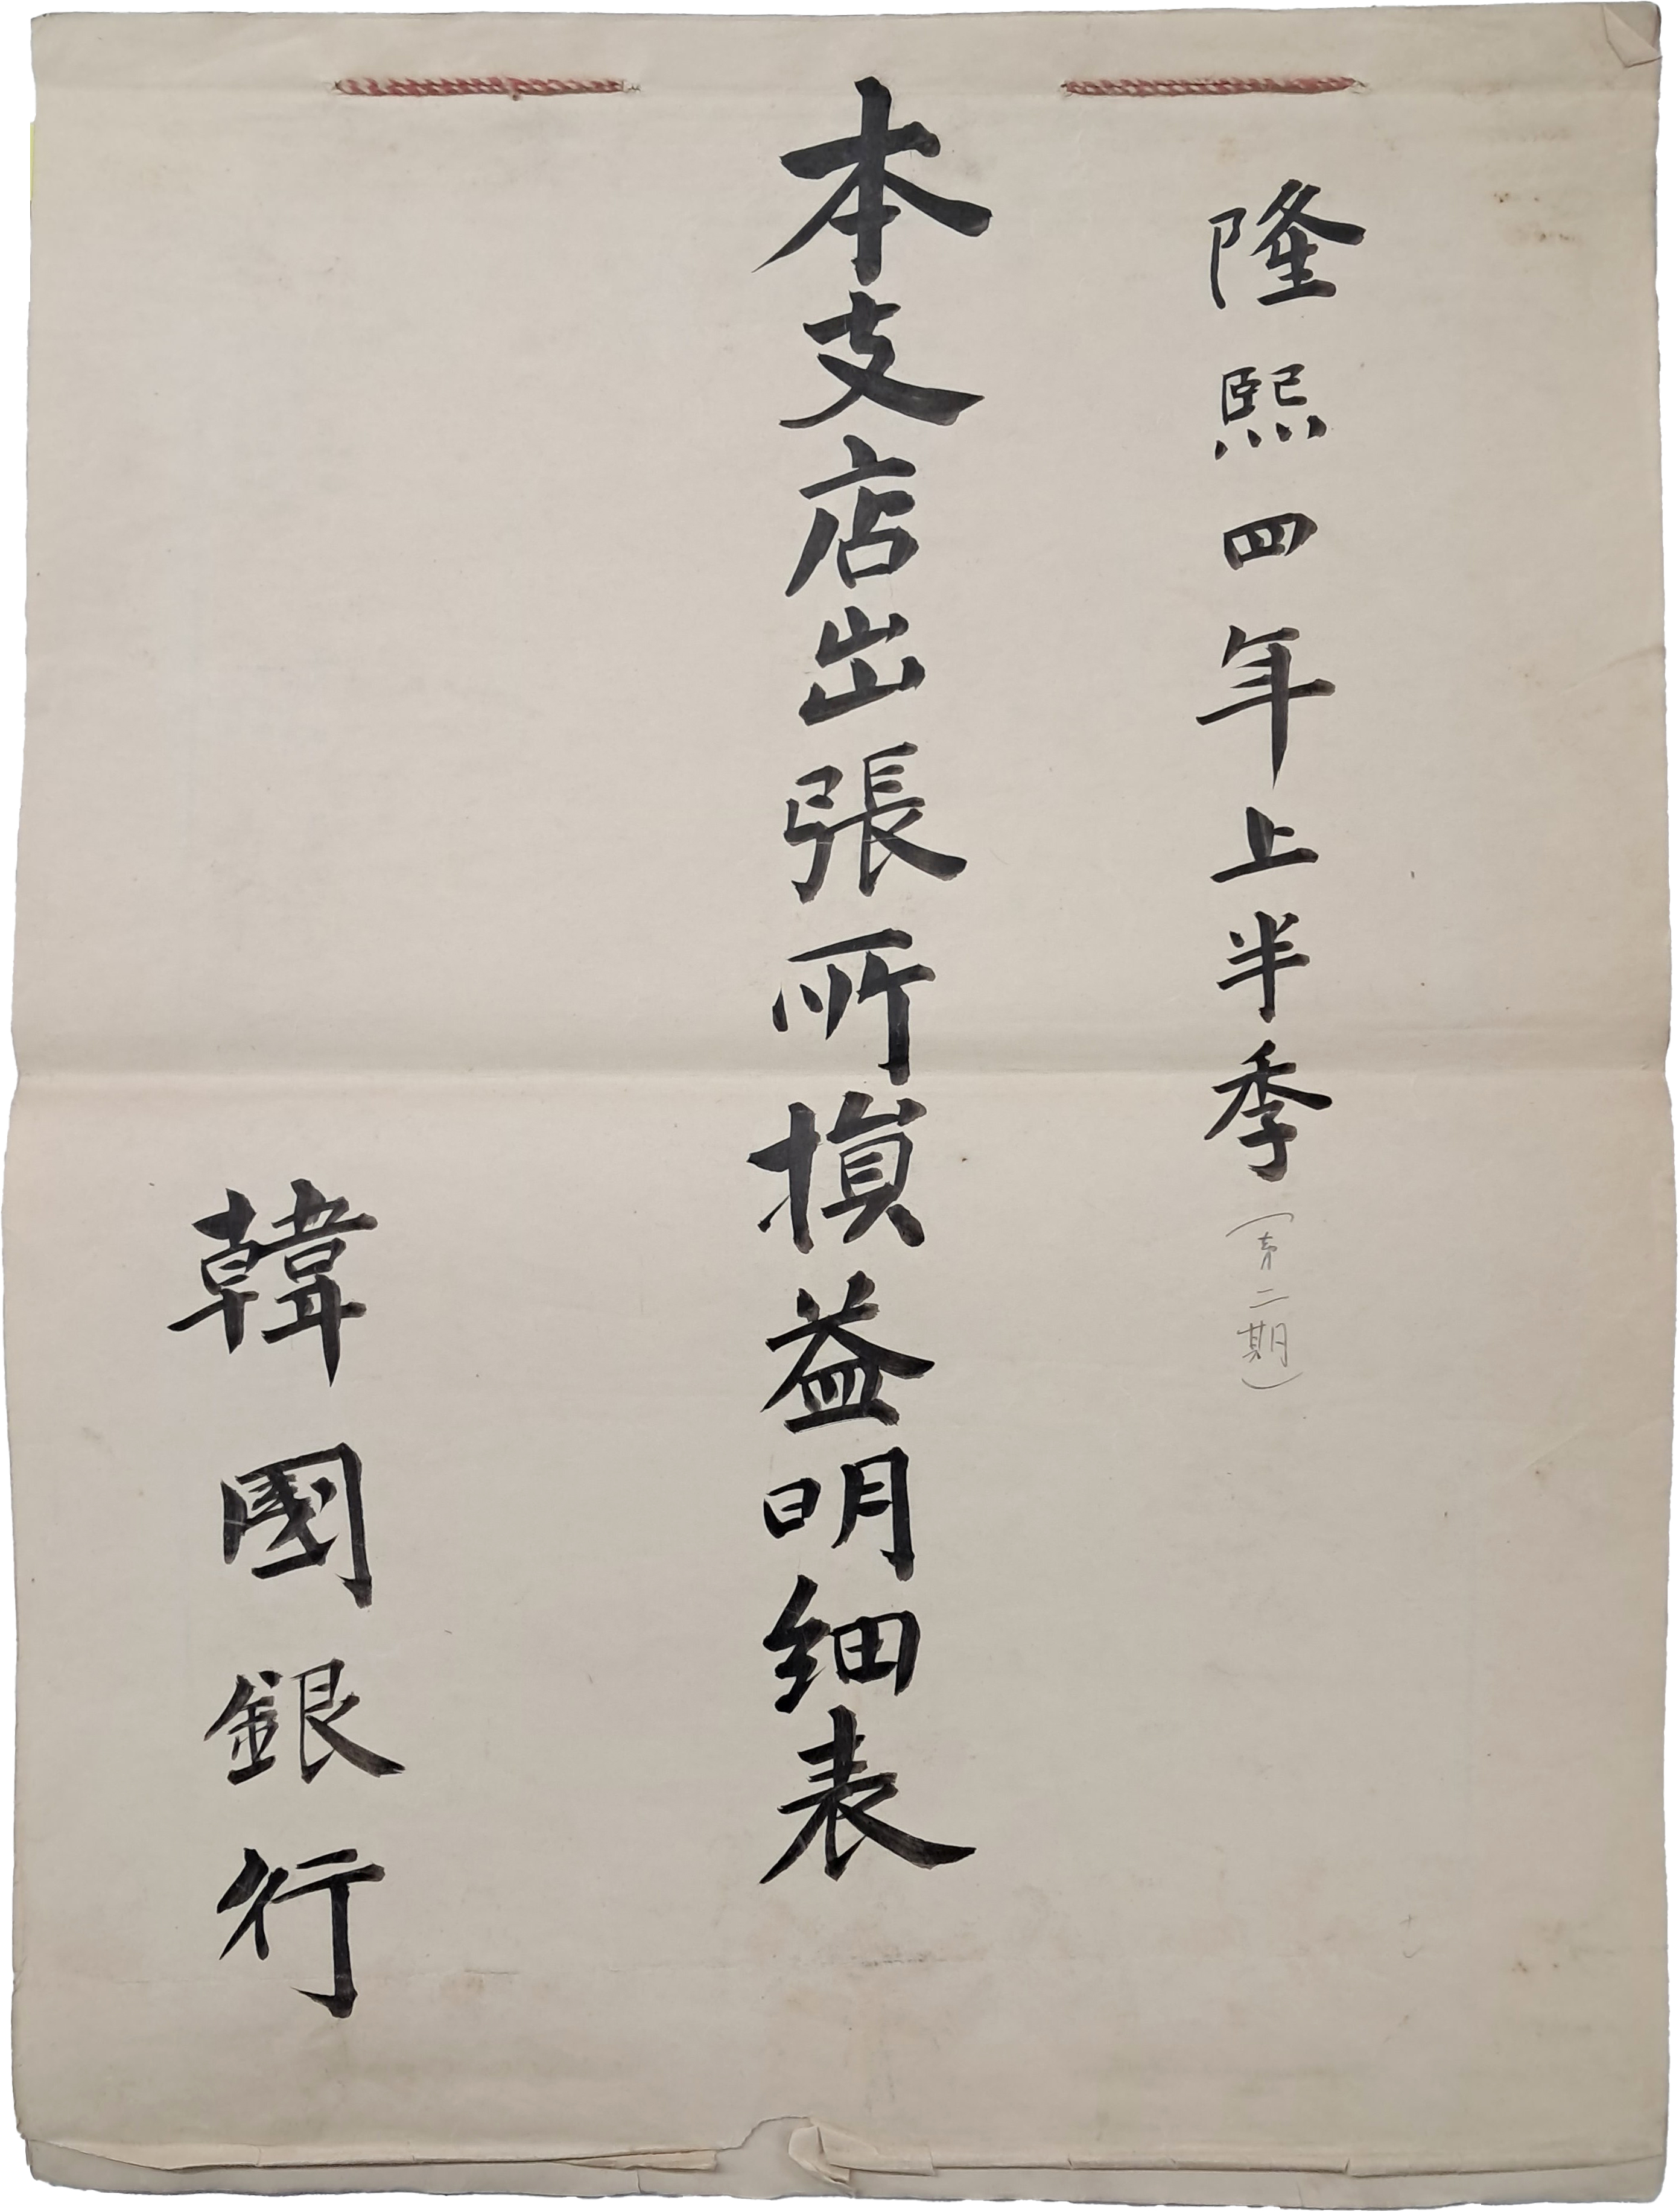 隆熙四年上半季（第二期）
本支店出張所損益明細表
韓國銀行